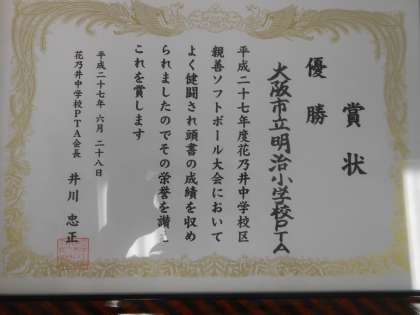 賞状
優勝
大阪市立明治小学校PTA
平成二十七年度花乃井中学校区
親善ソフトボール大会において
よく健闘され頭書の成績を収め
られましたのでその栄誉を讃え
これを賞します
平成二十七年 六月 二十八日
花乃井中学校PTA会長 井川 忠正